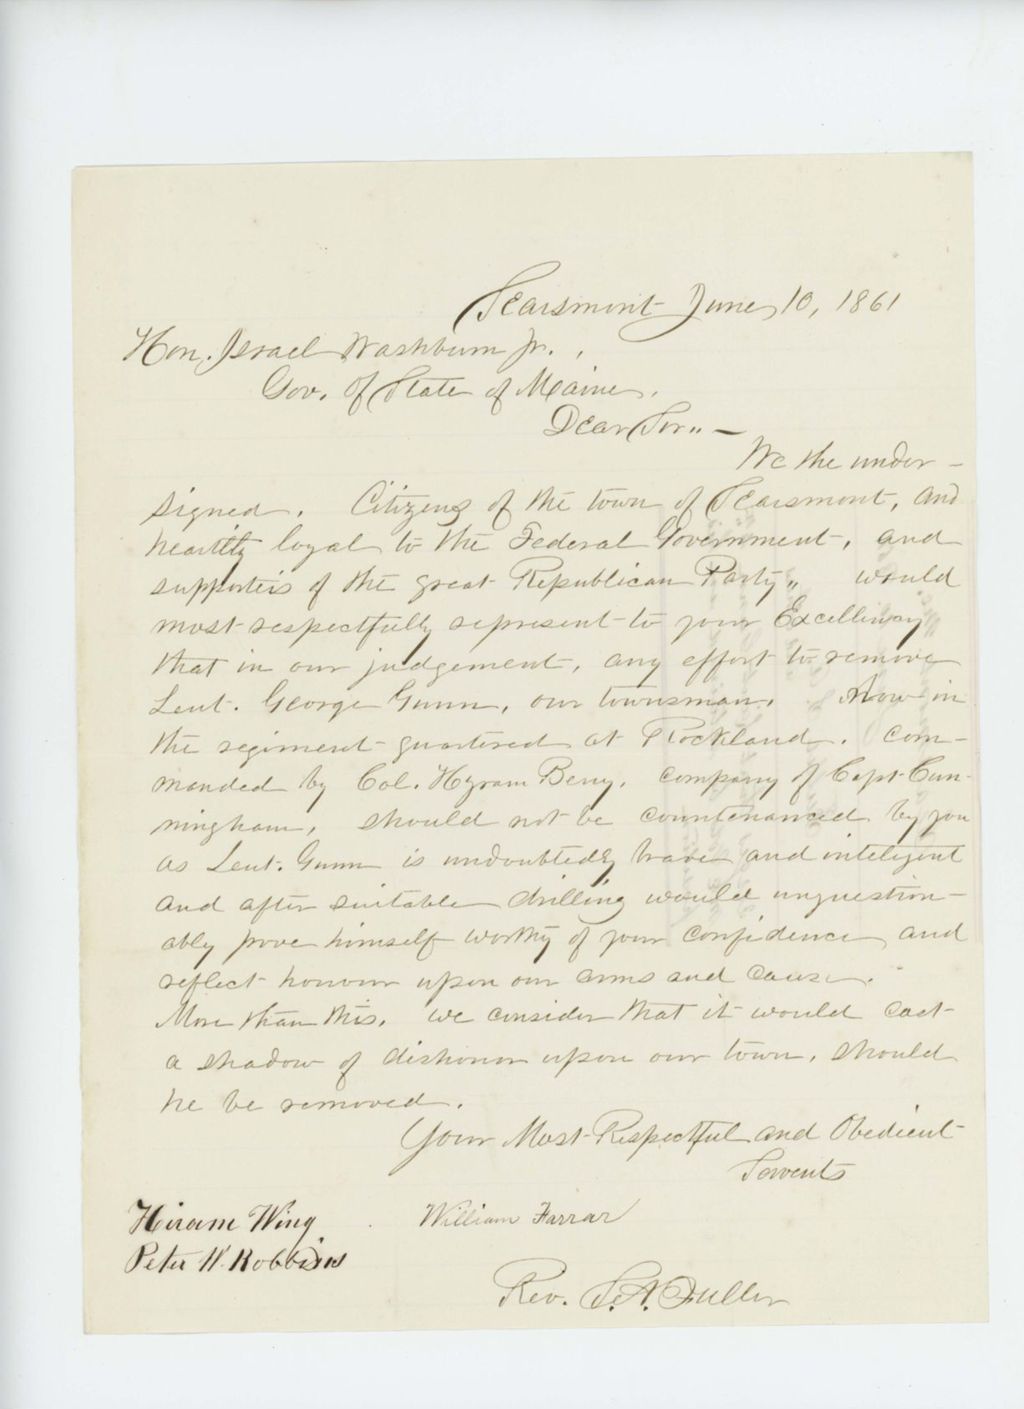 Searsmont June 10, 1861
Hon. Israel Washburn Jr.,
Gov. of State of Maine.
Dear Sir,, —
We the under-
signed. Citizens of the town of Searsmont, and
heartily loyal to the Federal Government, and
supporters of the great Republican Party,, would
most respectfully represent to your Excellency
that in our judgement, any effort to remove
Leut. George Gunn, our townsman. Now in
the regiment quartered at Rockland. Com-
manded by Col. Hyram Berry. Company of Capt Cun-
ningham, should not be countenanced by you
as Leut. Gunn is undoubtedly brave and inteligent
and after suitable drilling would unquestion-
ably prove himself worthy of your confidence and
reflect honour upon our arms and cause.
More than this. We consider that it would cast
a shadow of dishonor upon our town, should
he be removed.
Your Most Respectful and Obedient
Servents
Hiram Wing William Farrar
Peter W. Robbins
Rev. S. A. Fuller